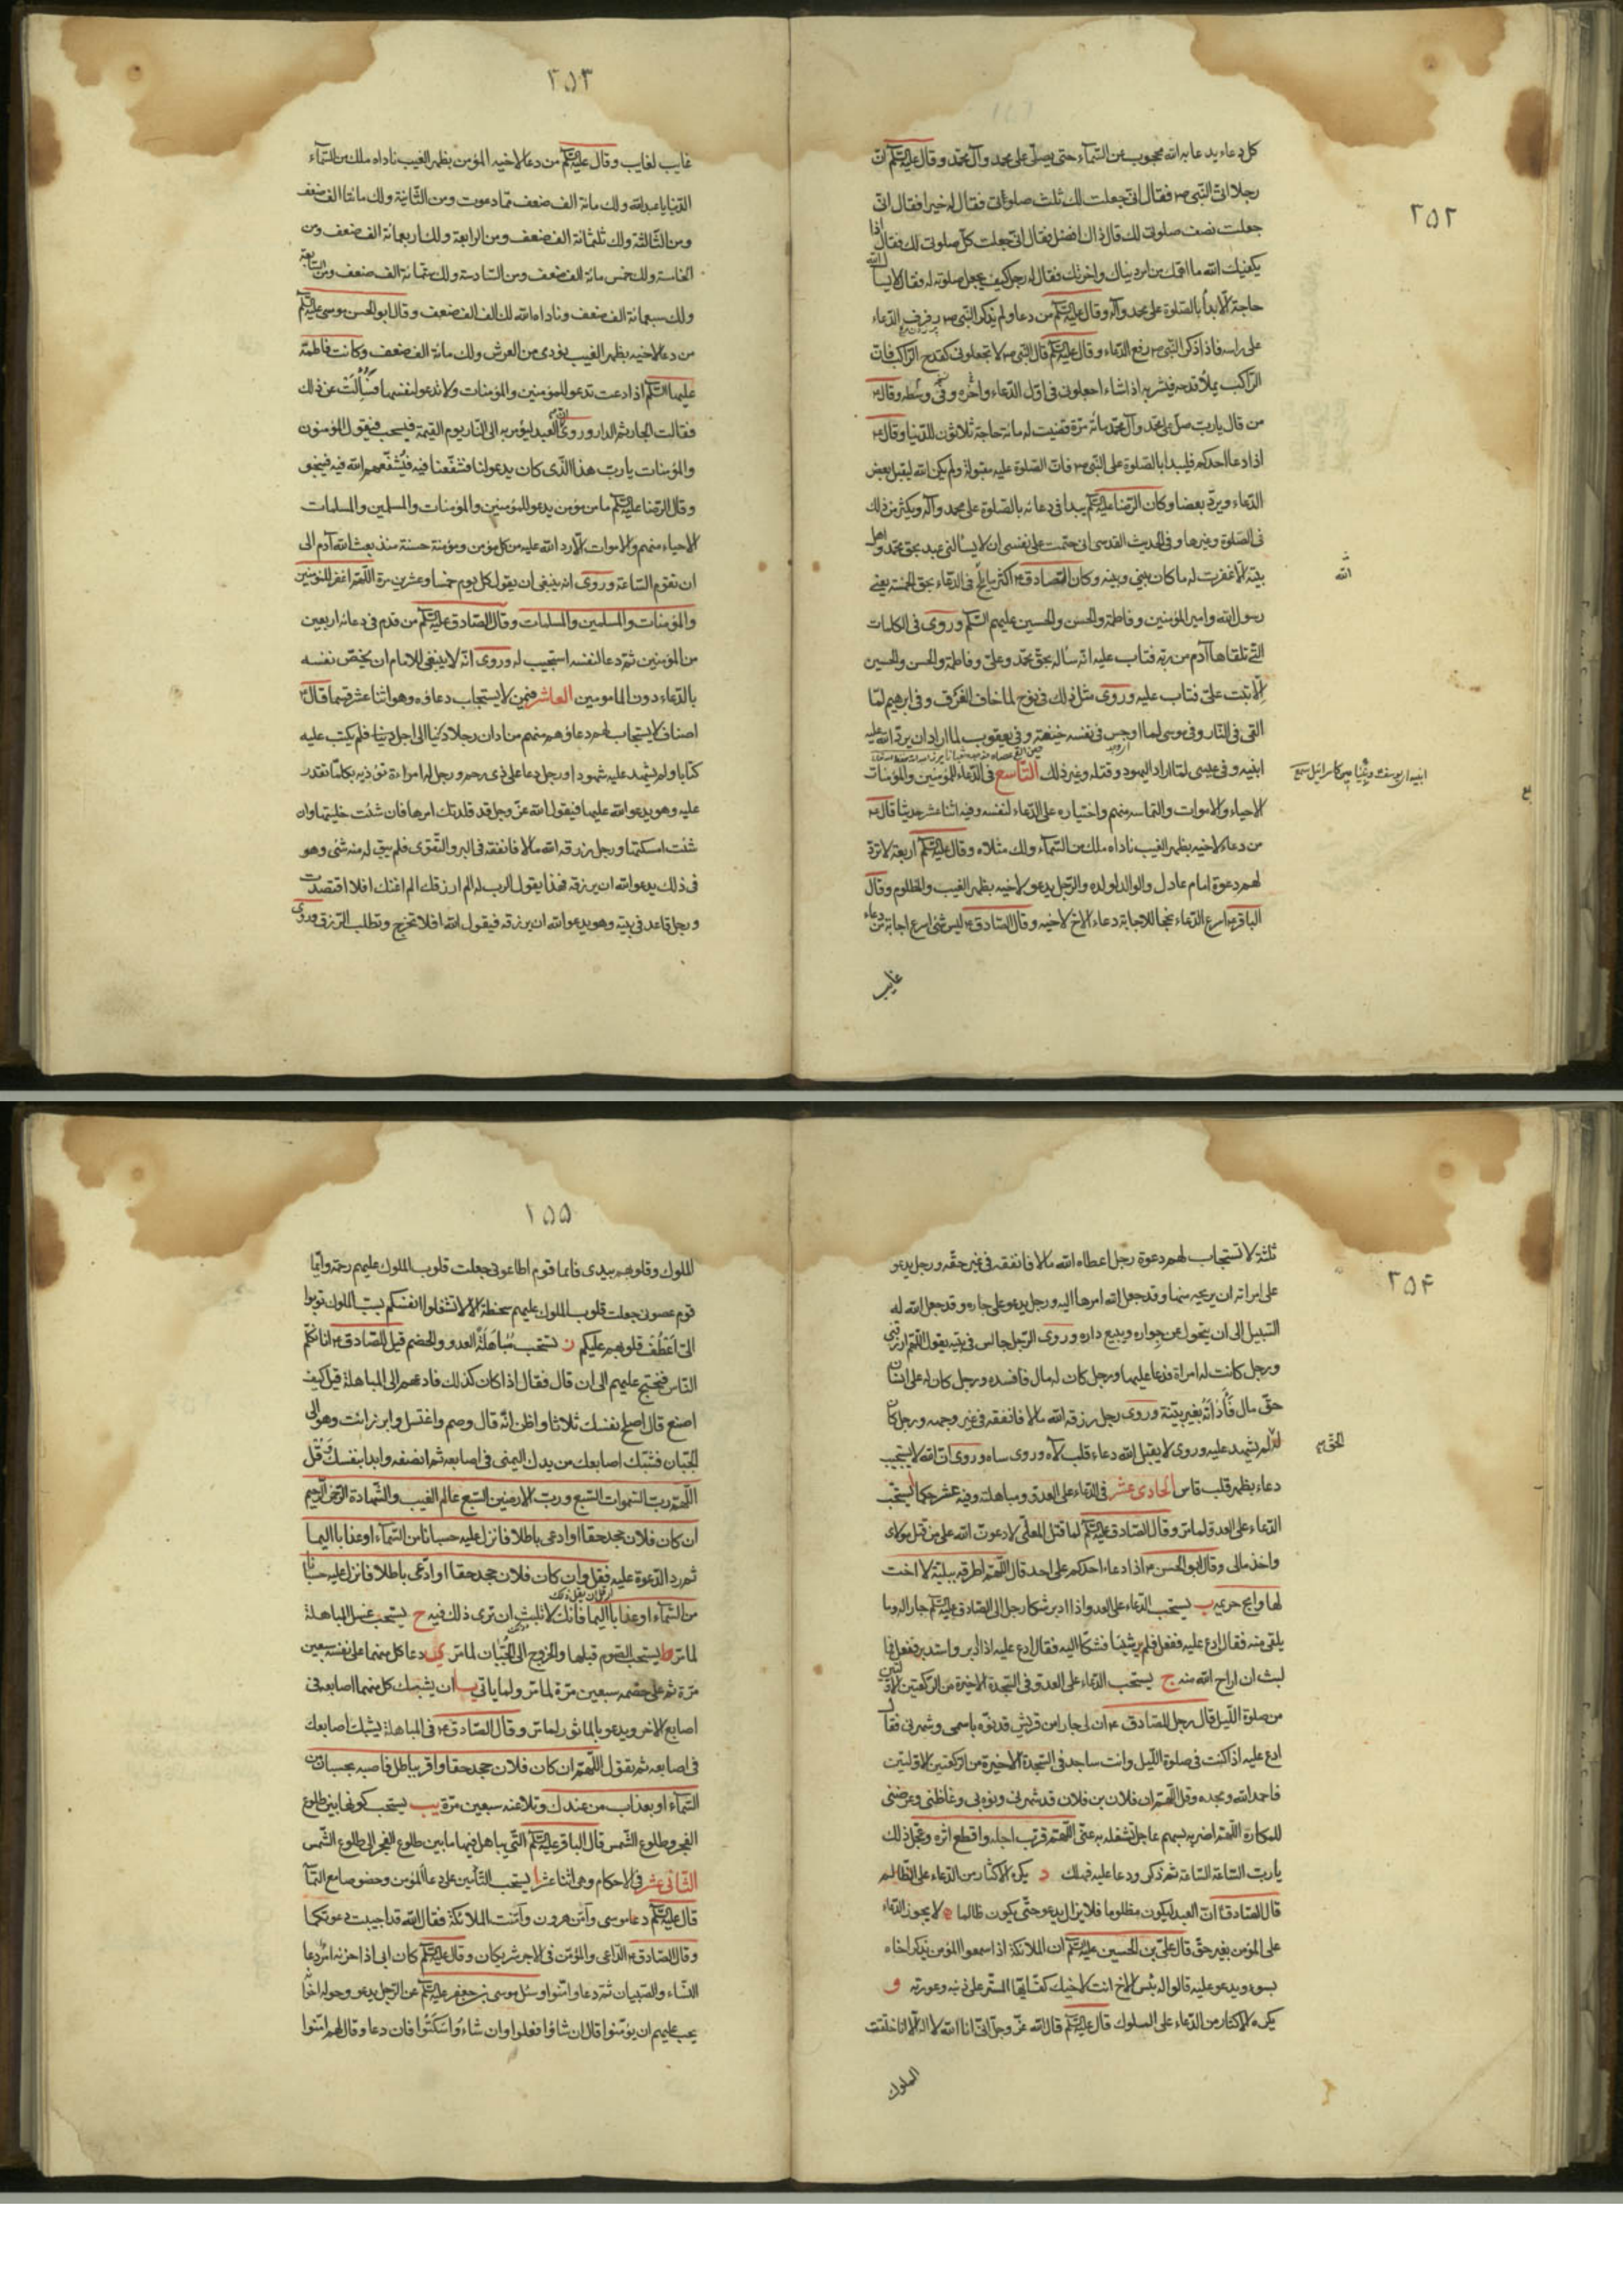 ٢٥٢
كل دعاء يدعا به الله محجوب عن السماء حتى يصلى على محمد وآل محمد وقال عليه السلم ان
رجلا اتى النبى ص فقال انى جعلت لك ثلث صلوتى فقال له خيرا فقال انى
جعلت نصف صلوتى لك قال ذاك افضل فقال انى جعلت كل صلوتى لك فقال اذا
يكفيك الله ما اهمك من امر دنياك واخرتك فقال له رجل كيف يجعل صلوته له فقال لا يسال الله
حاجة الا بدأ بالصلوة على محمد وآله وقال عليه السلم من دعا ولم يذكر النبى ص رفرف الدعاء
على راسه فاذا ذكر النبى ص رفع الدعاء وقال عليه السلم قال النبى ص لا تجعلونى كقدح الراكب فان
الراكب يملأ قدحه فيشربه اذا شاء اجعلونى فى اول الدعاء واخره وفى وسطه وقال ع
من قال يا رب صل على محمد وآل محمد مائة مرة قضيت له مائة حاجة ثلاثون للدنيا وقال ع
اذا دعا احدكم فليبدا بالصلوة على النبى ص فان الصلوة عليه مقبولة ولم يكن الله ليقبل بعض
الدعاء ويرد بعضا وكان الرضا عليه السلم يبدا فى دعائه بالصلوة على محمد وآله ويكثر من ذلك
فى الصلوة وغيرها وفى الحديث القدسى انى حتمت على نفسى ان لا يسالنى عبد بحق محمد واهل
بيته الا غفرت له ما كان بينى وبينه وكان الصادق ع اكثر ما يلح فى الدعاء بحق الخمسة يعنى
رسول الله وامير المؤمنين وفاطمة والحسن والحسين عليهم السلم وروى فى الكلمات
التى تلقاها آدم من ربه فتاب عليه انه سأله بحق محمد وعلى وفاطمة والحسن والحسين
الا تبت على فتاب عليه وروى مثل ذلك فى نوح لما خاف الغرق وفى ابرهيم لما
القى فى النار وفى موسى لما اوجس فى نفسه خيفة وفى يعقوب لما اراد ان يرد الله عليه
ابنيه وفى عيسى لما اراد اليهود قتله وغير ذلك التاسع فى الدعاء للمؤمنين والمؤمنات
الاحياء والاموات والتماسه منهم واختياره على الدعاء لنفسه وفيه اثنا عشر حديثا قال ع
من دعا لاخيه بظهر الغيب ناداه ملك من السماء ولك مثلاه وقال عليه السلم اربعة لا ترد
لهم دعوة امام عادل والوالد لولده والرجل يدعو لاخيه بظهر الغيب والمظلوم وقال
الباقر ع اسرع الدعاء نجحا للاجابة دعاء الاخ لاخيه وقال الصادق ع ليس شئ اسرع اجابة من دعاء
غايب
٢٥٣
غايب لغايب وقال عليه السلم من دعا لاخيه المؤمن بظهر الغيب ناداه ملك من السماء
الدنيا يا عبد الله ولك مائة الف ضعف مما دعوت ومن الثانية ولك مائتا الف ضعف
ومن الثالثة ولك ثلثمائة الف ضعف ومن الرابعة ولك اربعمائة الف ضعف ومن
الخامسة ولك خمس مائة الف ضعف ومن السادسة ولك ستمائة الف ضعف ومن السابعة
ولك سبعمائة الف ضعف وناداه الله لك الف الف ضعف وقال ابو الحسن موسى عليه السلم
من دعا لاخيه بظهر الغيب نودى من العرش ولك مائة الف ضعف وكانت فاطمة
عليها السلم اذا دعت تدعو للمؤمنين والمؤمنات ولا تدعو لنفسها فسالت عن ذلك
فقالت الجار ثم الدار وروى ان العبد ليؤمر به الى النار يوم القيمة فيسحب فيقول المؤمنون
والمؤمنات يا رب هذا الذى كان يدعو لنا فشفعنا فيه فيشفعهم الله فيه فينجو
وقال الرضا عليه السلم ما من مؤمن يدعو للمؤمنين والمؤمنات والمسلمين والمسلمات
الاحياء منهم والاموات الا رد الله عليه من كل مؤمن ومؤمنة حسنة منذ بعث الله آدم الى
ان تقوم الساعة وروى انه ينبغى ان يقول كل يوم خمسا وعشرين مرة اللهم اغفر للمؤمنين
والمؤمنات والمسلمين والمسلمات وقال الصادق عليه السلم من قدم فى دعائه اربعين
من المؤمنين ثم دعا لنفسه استجيب له وروى انه لا ينبغى للامام ان يخص نفسه
بالدعاء دون المامومين العاشر فيمن لا يستجاب دعاؤه وهو اثنا عشر قسما قال ع
اصناف لا يستجاب لهم دعاؤهم منهم من ادان رجلا دينا الى اجل فلم يكتب عليه
كتابا ولم يشهد عليه شهودا ورجل دعا على ذى رحم ورجل له امراءة تؤذيه بكل ما تقدر
عليه وهو يدعو الله عليها فيقول الله عز وجل قد قلدتك امرها فان شئت خليتها وان
شئت امسكتها ورجل رزقه الله مالا فانفقه فى البر والتقوى فلم يبق له منه شئ وهو
فى ذلك يدعو الله ان يرزقه فهذا يقول الرب له الم ارزقك الم اغنك افلا اقتصدت
ورجل قاعد فى بيته وهو يدعو الله ان يرزقه فيقول الله افلا تخرج وتطلب الرزق وروى
٢٥۴
ثلثة لا تستجاب لهم دعوة رجل اعطاه الله مالا فانفقه فى غير حقه ورجل يدعو
على امراته ان يريحه منها وقد جعل الله امرها اليه ورجل يدعو على جاره وقد جعل الله له
السبيل الى ان يتحول عن جواره ويبيع داره وروى الرجل جالس فى بيته يقول اللهم ارزقنى
ورجل كانت له امراة فدعا عليها ورجل كان له مال فافسده ورجل كان له على انسان
حق مال فادانه بغير بينة وروى رجل رزقه الله مالا فانفقه فى غير وجهه ورجل كان
له لم يشهد عليه وروى لا يقبل الله دعاء قلب لاه وروى ساه وروى ان الله لا يستجيب
الحق
دعاء بظهر قلب قاس الحادى عشر فى الدعاء على العدو ومباهلته وفيه عشر حكما ا يستحب
الدعاء على العدو لما مر وقال الصادق عليه السلم لما قتل المعلى لادعون الله على من قتل مولاى
واخذ مالى وقال ابو الحسن ع اذا دعاء احدكم على احد قال اللهم اطرقه ببلية لا اخت
لها وابح حريمه ب يستحب الدعاء على العدو اذا ادبر شكا رجل الى الصادق عليه السلم جارا له وما
يلقى منه فقال ادع عليه ففعل فلم ير شيئا فشكا اليه فقال ادع عليه اذا ادبر واستدبر ففعل فما
لبث ان اراح الله منه ج يستحب الدعاء على العدو فى السجدة الاخيرة من الركعتين الاولتين
من صلوة الليل قال رجل للصادق ع ان لى جارا من قريش قد نوه باسمى وشهرنى فقال
ادع عليه اذا كنت فى صلوة الليل وانت ساجد فى السجدة الاخيرة من الركعتين الاولتين
فاحمد الله ومجده وقل اللهم ان فلان بن فلان قد شهرنى ونوه بى وغاظنى وعرضنى
للمكاره اللهم اضربه بسهم عاجل تشغله به عنى اللهم قرب اجله واقطع اثره وعجل ذلك
يا رب الساعة الساعة ثم ذكر ودعا عليه فهلك د يكره الاكثار من الدعاء على الظالم
قال الصادق ع ان العبد ليكون مظلوما فلا يزال يدعو حتى يكون ظالما ه لا يجوز الدعاء
على المؤمن بغير حق قال على بن الحسين عليه السلم ان الملائكة اذا سمعوا المؤمن يذكر اخاه
بسوء ويدعو عليه قالوا له بئس الاخ انت لاخيك كف ايها المستر على ذنبه وعورته و
يكره الاكثار من الدعاء على الملوك قال عليه السلم قال الله عز وجل انى انا الله لا اله الا انا خلقت
الملوك
١٥٥
الملوك وقلوبهم بيدى فايما قوم اطاعونى جعلت قلوب الملوك عليهم رحمة وايما
قوم عصونى جعلت قلوب الملوك عليهم سخطة الا لا تشغلوا انفسكم بسب الملوك توبوا
الى اعطف قلوبهم عليكم ز يستحب مباهلة العدو والخصم قيل للصادق ع انا نكلم
الناس فنحتج عليهم الى ان قال فقال اذا كان كذلك فادعهم الى المباهلة قيل كيف
اصنع قال اصلح نفسك ثلاثا واظن انه قال وصم واغتسل وابرز انت وهو الى
الجبان فشبك اصابعك من يدك اليمنى فى اصابعه ثم انصفه وابدا بنفسك وقل
اللهم رب السموات السبع ورب الارضين السبع عالم الغيب والشهادة الرحمن الرحيم
ان كان فلان جحد حقا او ادعى باطلا فانزل عليه حسبانا من السماء او عذابا اليما
ثم رد الدعوة عليه فقل وان كان فلان جحد حقا او ادعى باطلا فانزل عليه حسبانا
من السماء او عذابا اليما فانك لا تلبث ان ترى ذلك فيه ح يستحب غسل المباهلة
لما مر ط يستحب الصوم قبلها والخروج الى الجبان لما مر ى دعا كل منهما على نفسه سبعين
مرة ثم على خصمه سبعين مرة لما مر ولما ياتى يا ان يشبك كل منهما اصابعه فى
اصابع الاخر ويدعو بالماثور لما مر وقال الصادق ع فى المباهلة يشبك اصابعك
فى اصابعه ثم تقول اللهم ان كان فلان جحد حقا واقر بباطل فاصبه بحسبان من
السماء او بعذاب من عندك وتلاعنه سبعين مرة يب يستحب كونها بين طلوع
الفجر وطلوع الشمس قال الباقر عليه السلم التى يباهل فيها ما بين طلوع الفجر الى طلوع الشمس
الثانى عشر فى الاحكام وهى اثنا عشر ا يستحب التأمين على دعا المؤمن
قال عليه السلم دعا موسى وآمن هرون وآمنت الملائكة فقال الله قد اجيبت دعوتكما
وقال الصادق ع الداعى والمؤمن فى الاجر شريكان وقال عليه السلم كان ابى اذا حزنه امر دعا
النساء والصبيان ثم دعا وامنوا وسئل موسى بن جعفر عليه السلم عن الرجل يدعو وحوله اخوانه
يجب عليهم ان يؤمنوا قال ان شاؤا فعلوا وان شاءوا سكتوا فان دعا وقال لهم امنوا